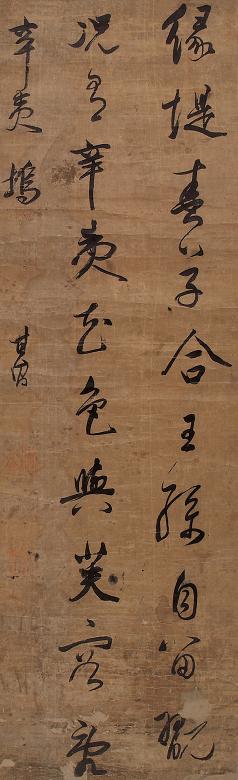 綠堤春草合王孫自留翫
況有辛夷花色與芙蓉亂
辛夷塢
其昌